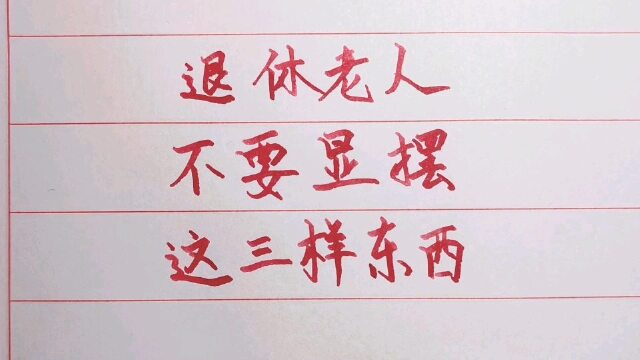 退休老人
不要显摆
这三样东西